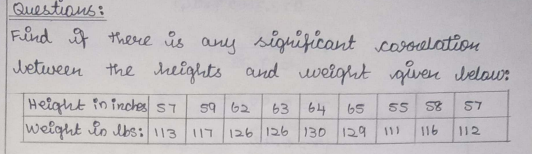 Questions:
Find if there is any significant correlation
between the heights and weight given below:
Height in inches 57 59 62 63 64 65 55 58 57
Weight in lbs: 113 117 126 126 130 129 111 116 112